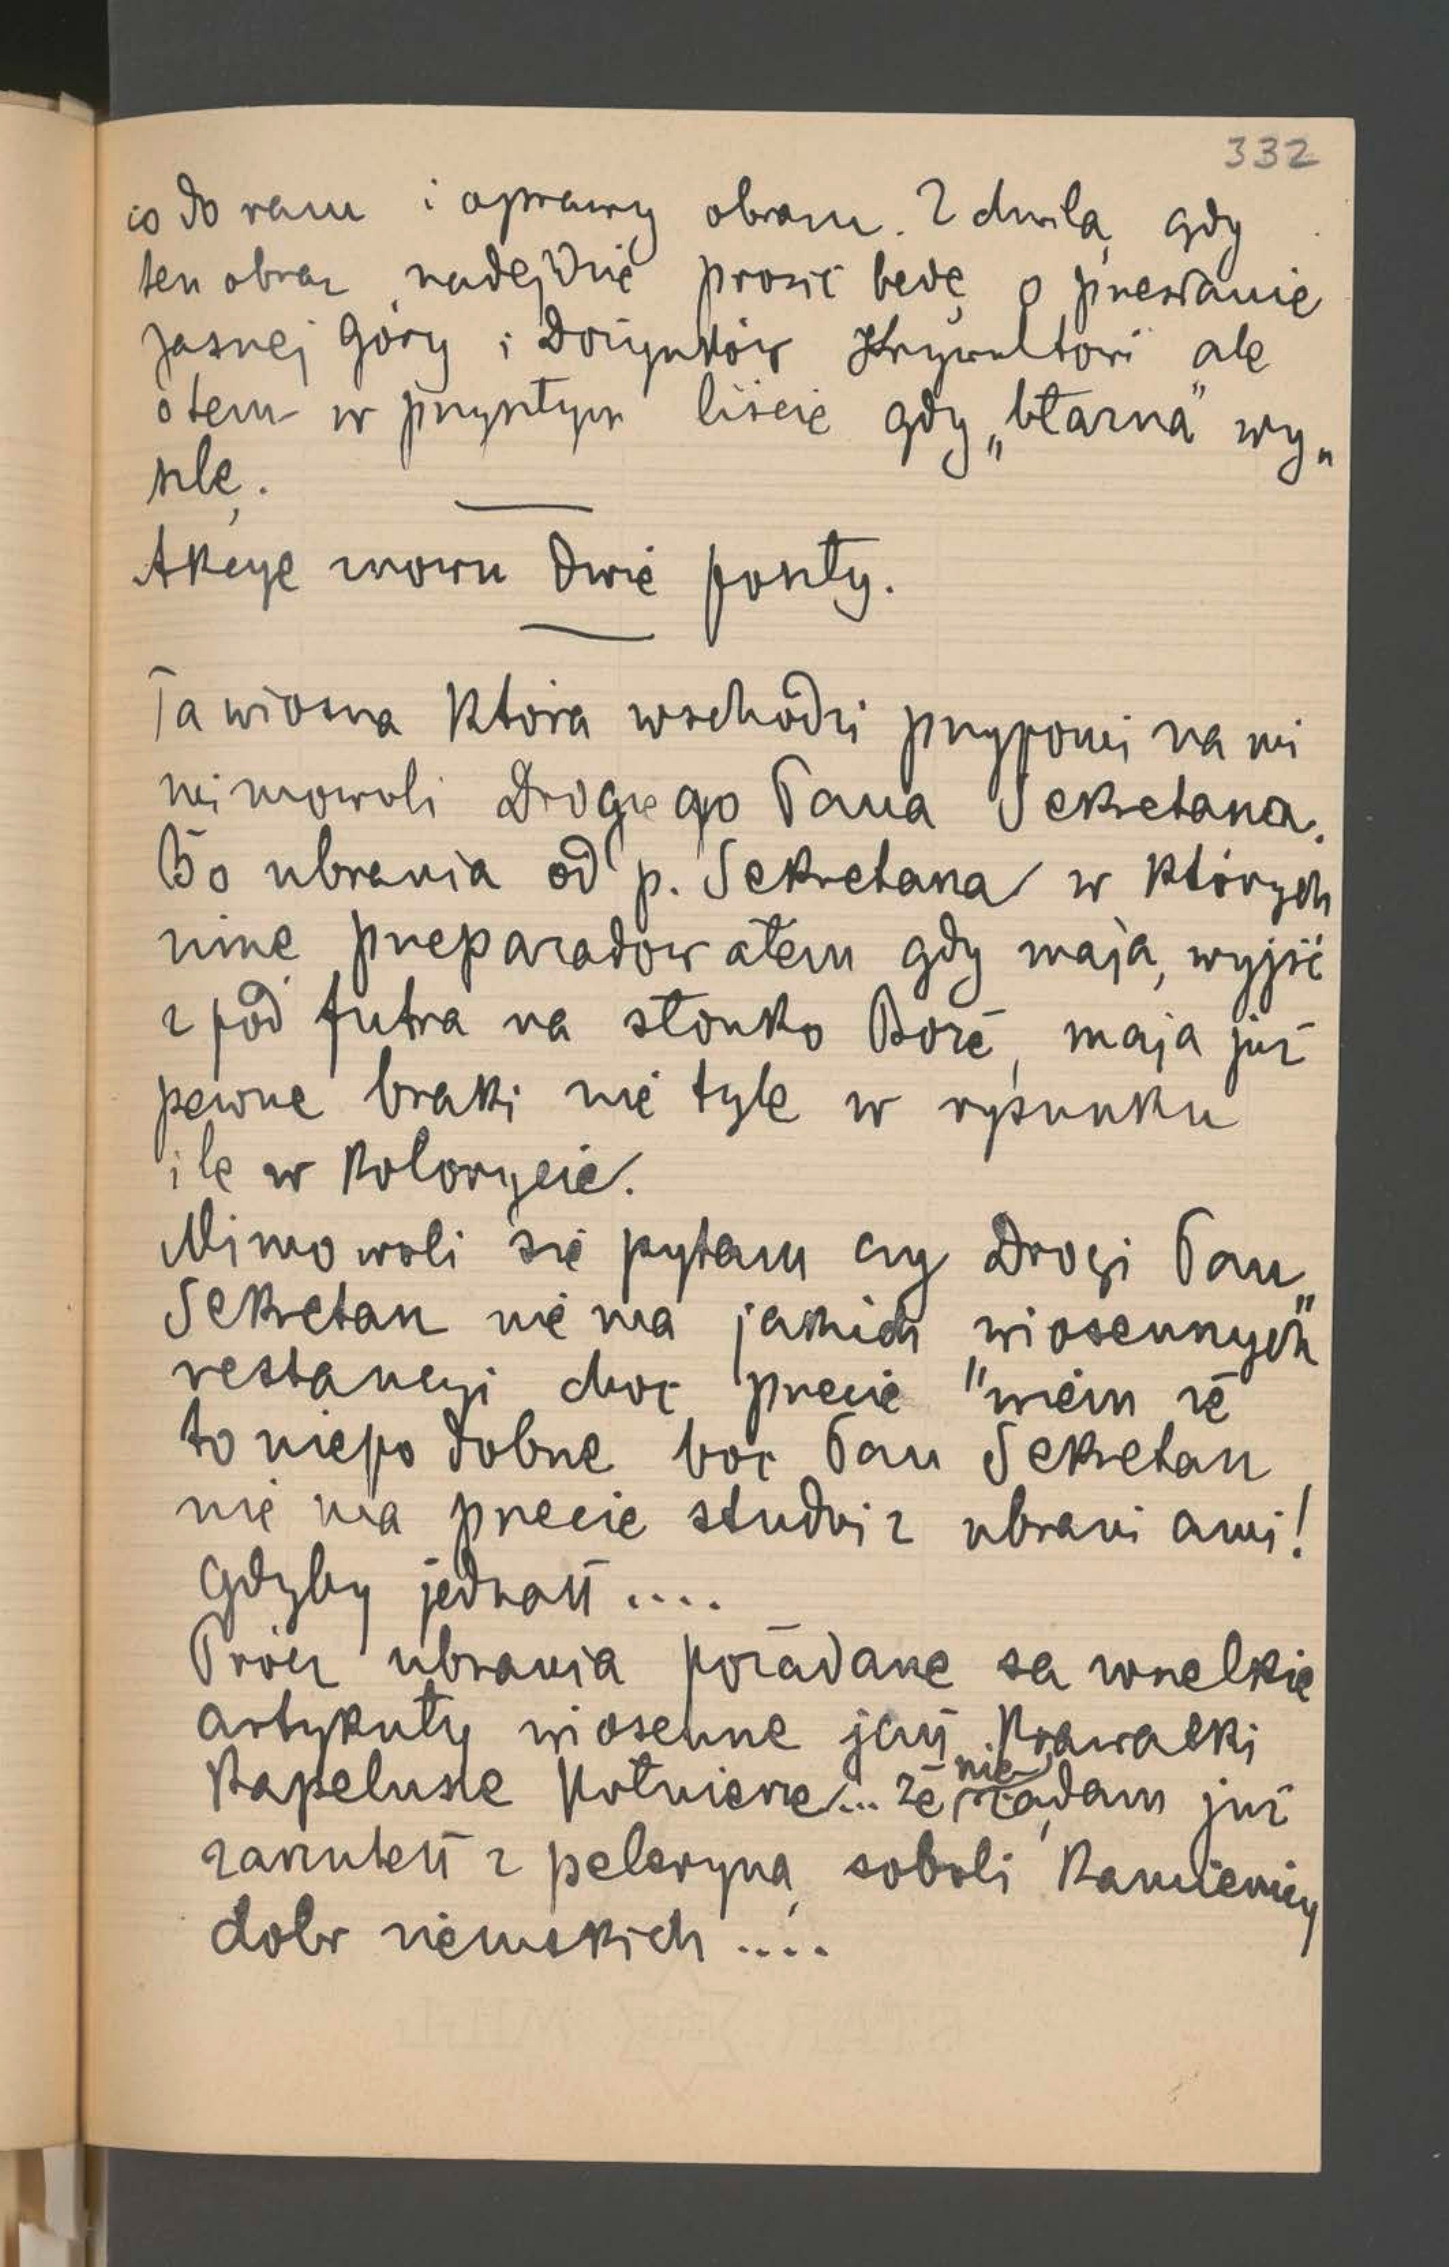 332
co do ram i oprawy obrazu. Z chwilą gdy
ten obraz nadejdzie prosić będę o przesłanie
Jasnej Góry i Dożynków Krywultowi ale
o tem w przyszłym liście gdy „błazna" wy„
szlę.
Akcye znowu dwie poszły.
Ta wiosna która wschodzi przypomina mi
mimowoli Drogiego Pana Sekretarza.
Bo ubrania od p. Sekretarza w których
zimę przeparadowałem gdy mają wyjść
z pod futra na słonko Boże, mają już
pewne braki nie tyle w rysunku
ile w kolorycie.
Mimowoli się pytam czy Drogi Pan
Sekretarz nie ma jakich „wiosennych"
restancyi choć przecie wiem że
to niepodobne boć Pan Sekretarz
nie ma przecie studni z ubraniami!
Gdyby jednak ....
Prócz ubrania pożądane są wszelkie
artykuły wiosenne jak krawatki
kapelusze kołnierze... że nie żądam już
zarzutek z peleryną soboli kamienicy
dobr ziemskich ....